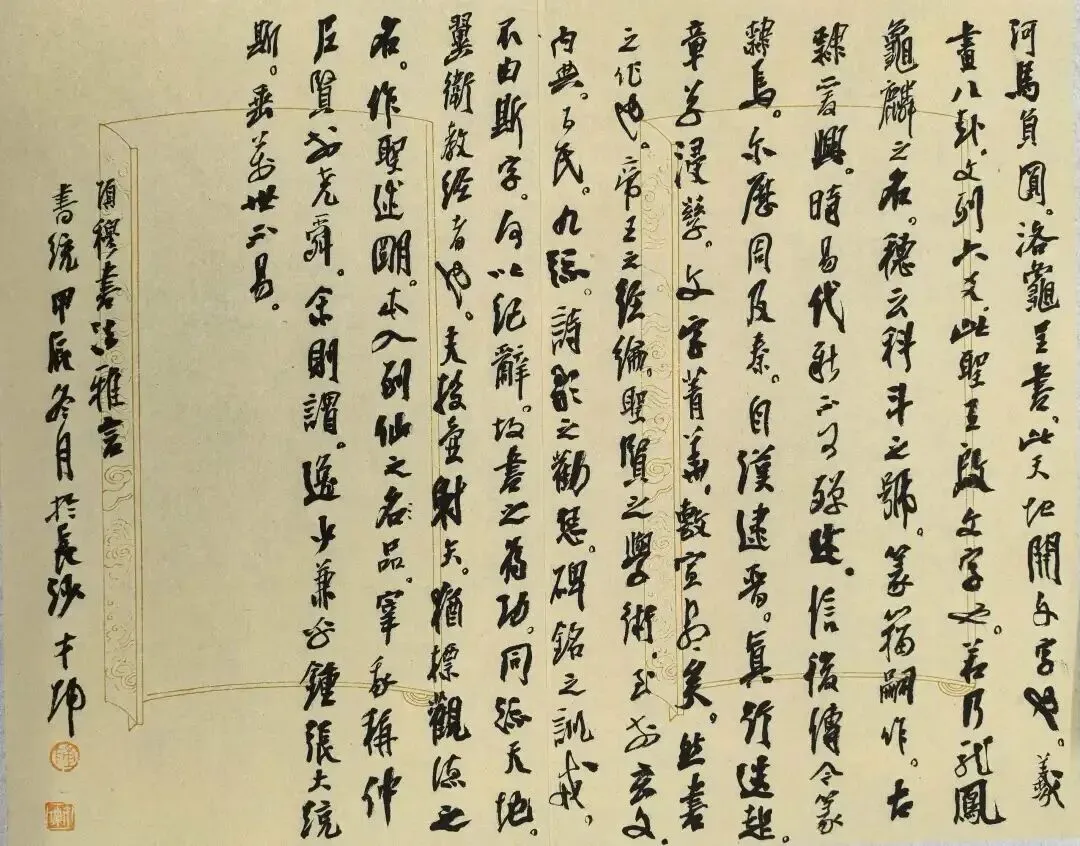 河馬負圖。洛龜呈書。此天地開文字也。羲
畫八卦。文列六爻。此聖王啟文字也。若乃龍鳳
龜麟之名。穗云科斗之號。篆籀嗣作。古
隸爰興。時易代新。不可殫述。信後傳今。篆
隸焉。尒歷周及秦。自漢逮晉。真行迭起。
章草浸孳。文字菁華。敷宣盡矣。然書
之作也。帝王之經綸。聖賢之學術。至於玄文
內典。百氏。九流。詩歌之勸懲。碑銘之訓戒。
不由斯字。何以紀辭。故書之為功。同流天地。
翼衛教經者也。夫投壺射矢。猶標觀德之
名。作聖述明。本入列仙之名品。宰我稱仲
尼賢於堯舜。余則謂。逸少兼乎鍾張大統
斯。垂萬世不易。
項穆書法雅言
書統甲辰冬月於長沙